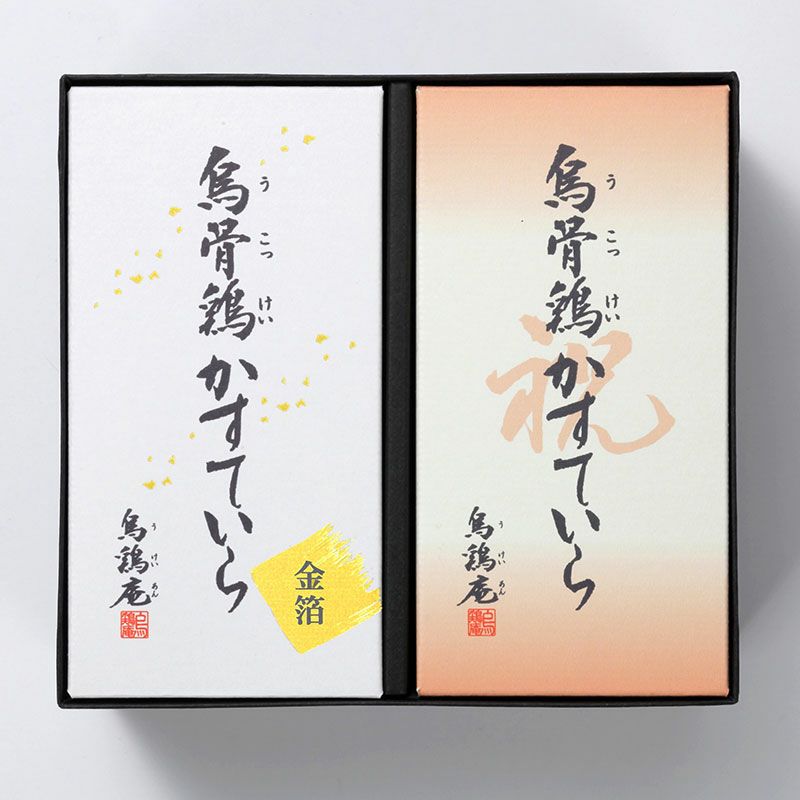 烏骨鶏かすていら
うこっけい
烏鶏庵
うけいあん
金箔
祝
烏骨鶏かすていら
うこっけい
烏鶏庵
うけいあん